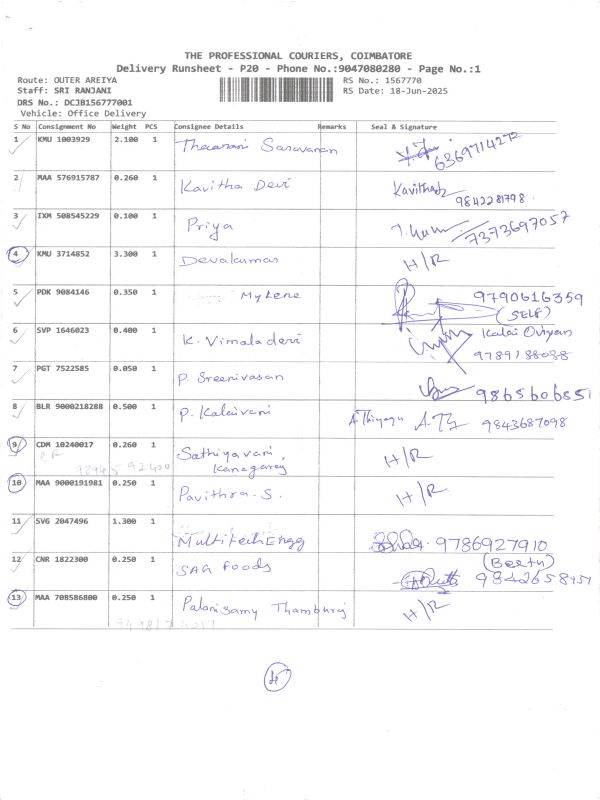 THE PROFESSIONAL COURIERS, COIMBATORE
Delivery Runsheet - P20 - Phone No.:9047080280 - Page No.:1
Route: OUTER AREIYA RS No.: 1567770
Staff: SRI RANJANI RS Date: 18-Jun-2025
DRS No.: DCJB156777001
Vehicle: Office Delivery
S No Consignment No Weight PCS Consignee Details Remarks Seal & Signature
1 KMU 1003929 2.100 1 Saravanan 63697114272
2 MAA 576915787 0.260 1 Kavitha Devi Kavitha 9842281798
3 IXM 508545229 0.100 1 Priya 7373697057
4 KMU 3714852 3.300 1 Devakumar H/R
5 PDK 9084146 0.350 1 Mylene 9790616359
(SELF)
6 SVP 1646023 0.400 1 K. Vimaladevi Kalai Oviyan
9789188088
7 PGT 7522585 0.050 1 P. Sreenivasan 9865606851
8 BLR 9000218288 0.500 1 P. Kalaivani A Thiyagu 9843687098
9 CDM 10240017 0.260 1 Sathiyavani, H/R
Kanagaraj
10 MAA 9000191981 0.250 1 Pavithra. S. H/R
11 SVG 2047496 1.300 1 Multitech Engg 9786927910
12 CNR 1822300 0.250 1 SAG Foods 9842658951
13 MAA 708586800 0.250 1 Palanisamy Thamburaj H/R